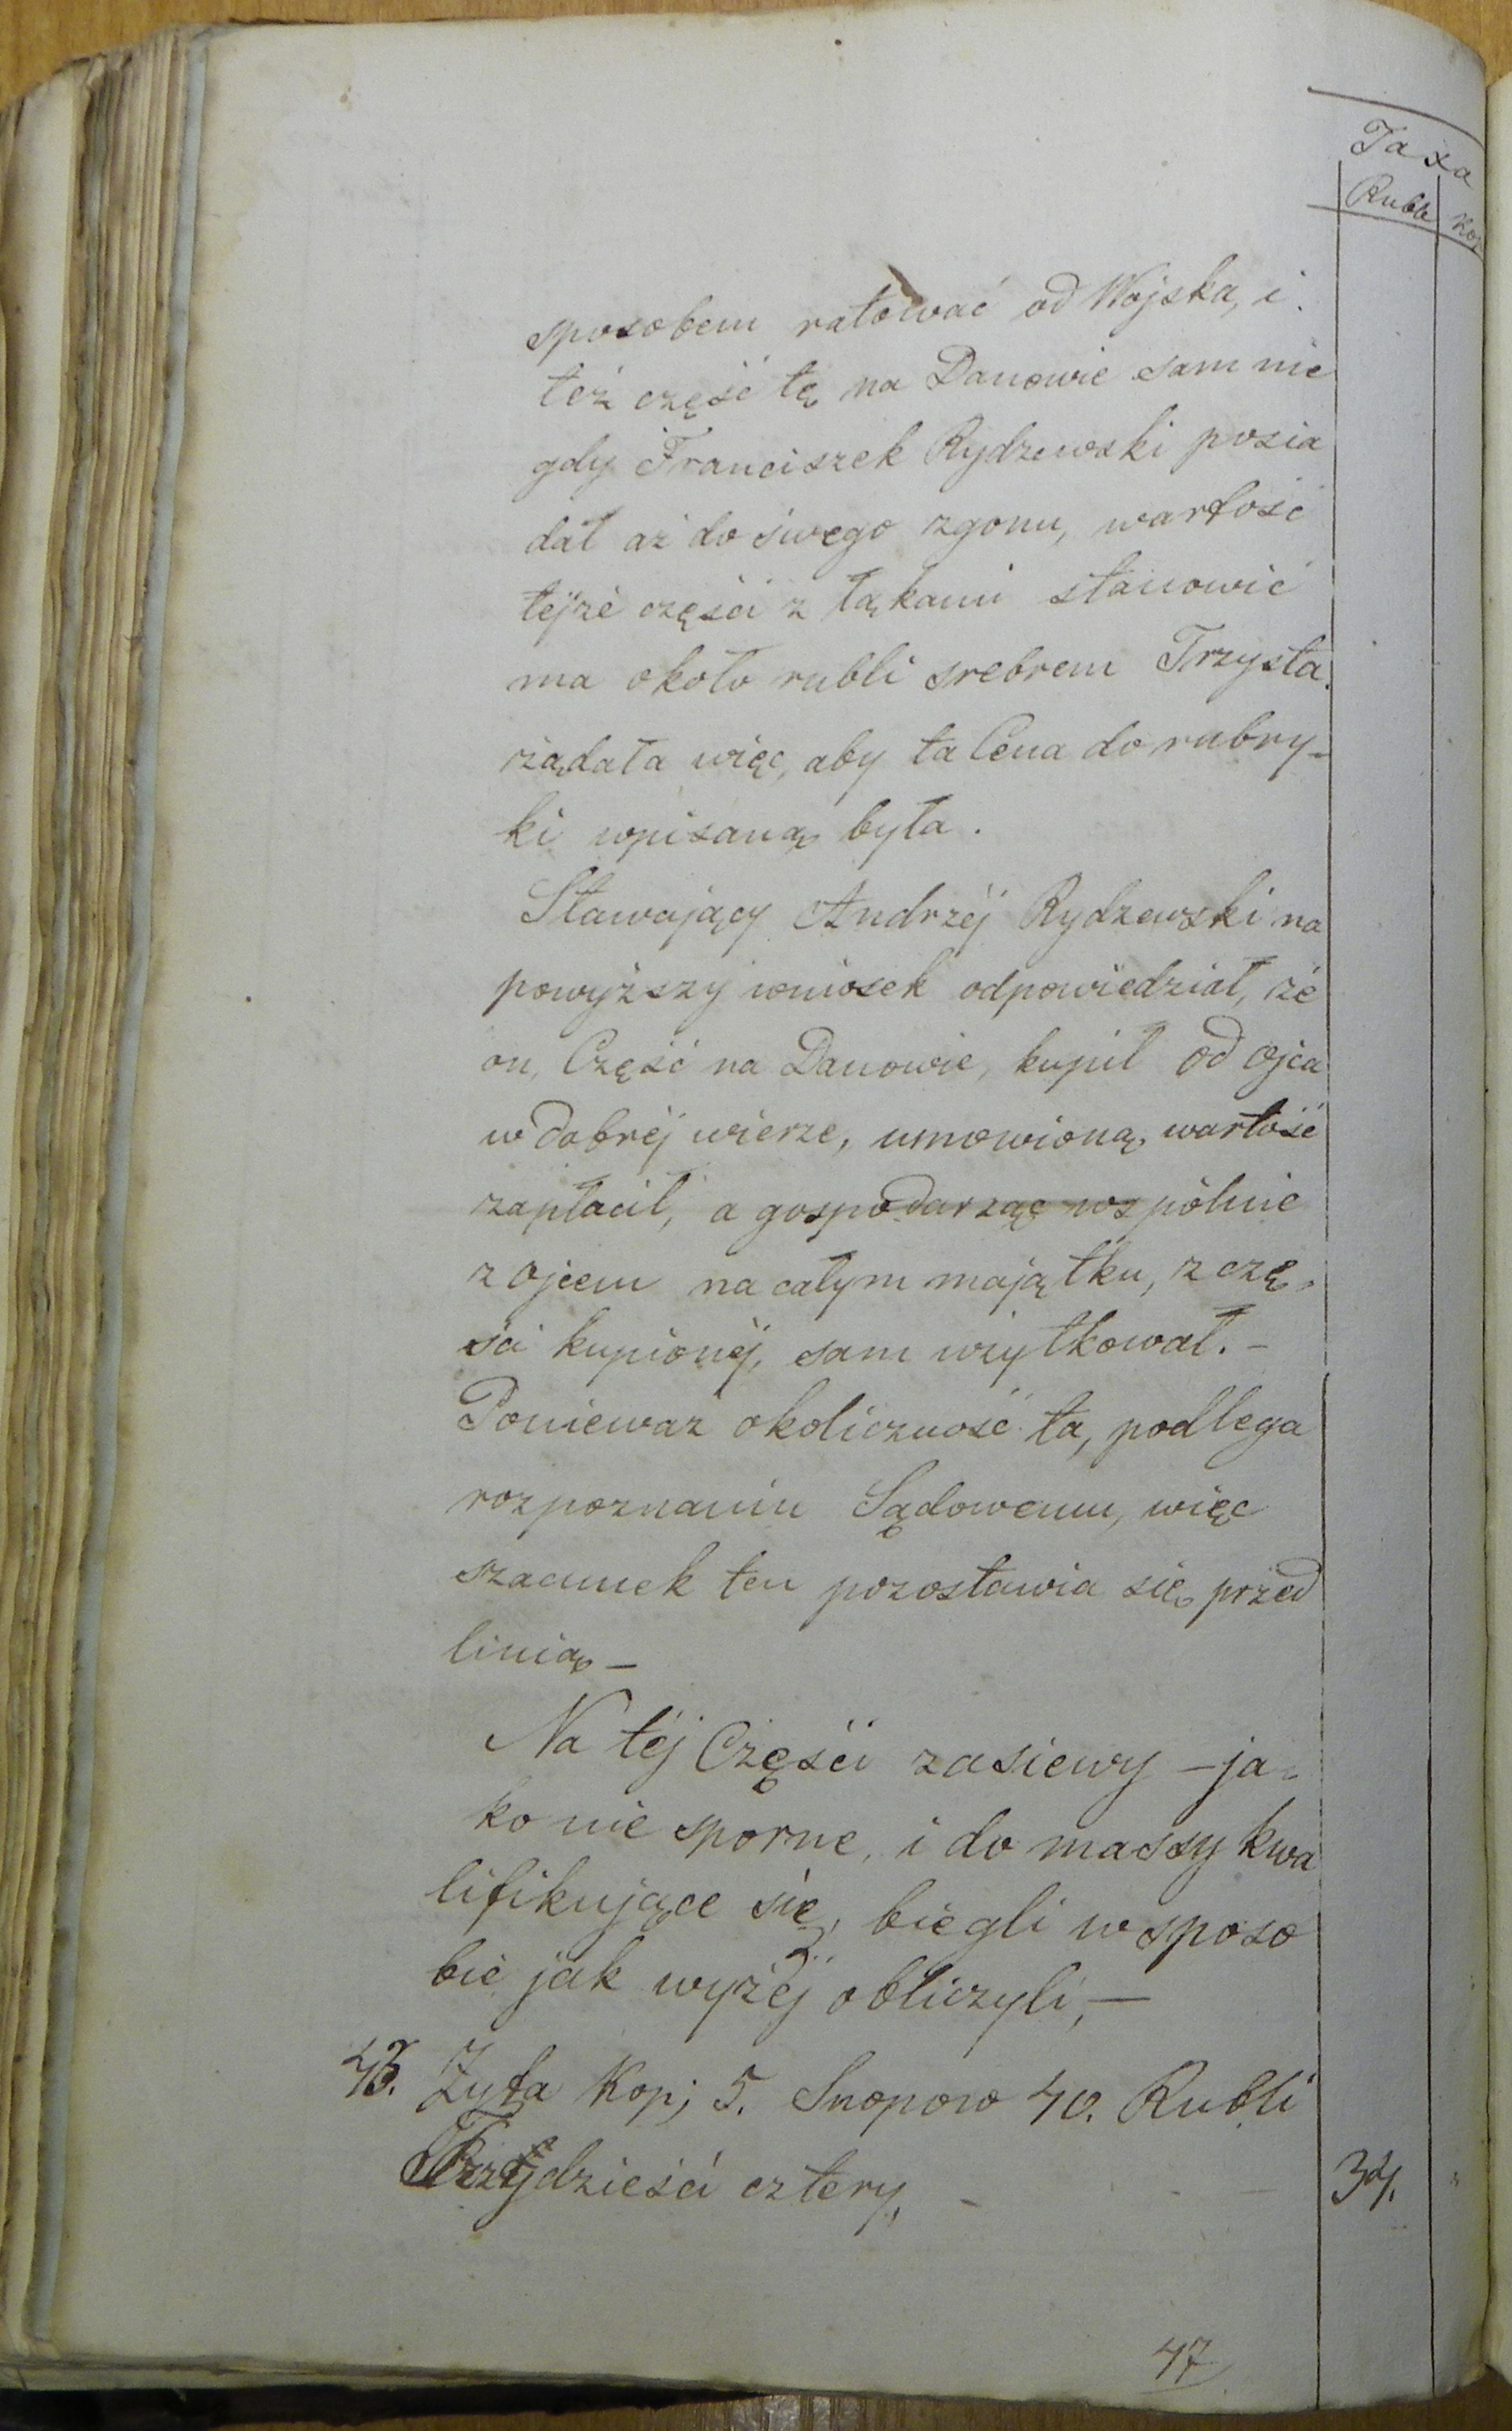 Taxa
Ruble Kop
sposobem ratować od Wojska, i
też część tę na Danowie sam nie
gdy Franciszek Rydzewski posia
dał aż do swego zgonu, wartość
tejże części z łąkami stanowić
ma około rubli srebrem Trzysta.
żądała więc, aby ta Cena do rubry-
ki wpisaną była.
Stawający Andrzéj Rydzewski na
powyższy wniosek odpowiedział, że
on, Część na Danowie, kupił od ojca
w dobréj wierze, umowioną wartość
zapłacił, a gospodarząc wspólnie
z ojcem na całym majątku, z czę-
ści kupionéj, sam użytkował. -
Poniewaz okoliczność ta, podlega
rozpoznaniu Sądowemu, więc
szacunek ten pozostawia się przed
linią -
Na téj Części zasiewy - ja-
ko nie sporne, i do massy kwa
lifikujące się, biegli w sposo
bie jak wyżéj obliczyli, -
Żyta Kop; 5. Snopow 40. Rubli
Trzydzieści cztery, - 34. "
47